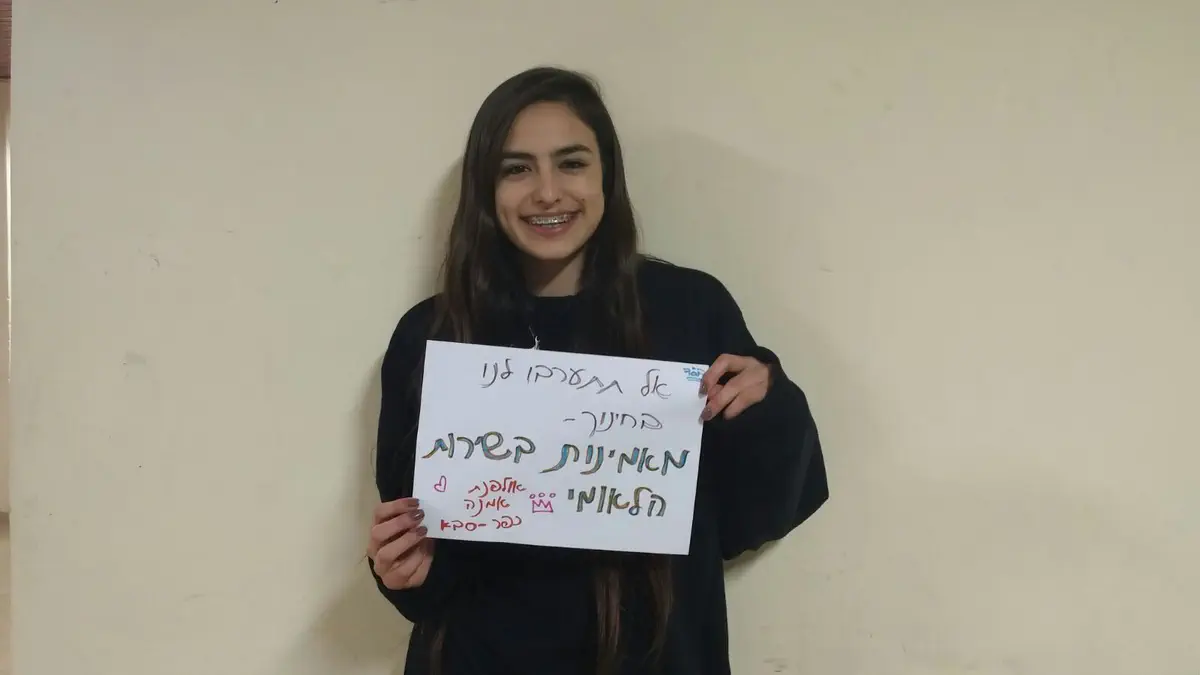 אל תתערבו לנו
בחינוך-
מאמינות בשירות
הלאומי
אולפנת
אמנה
כפר-סבא